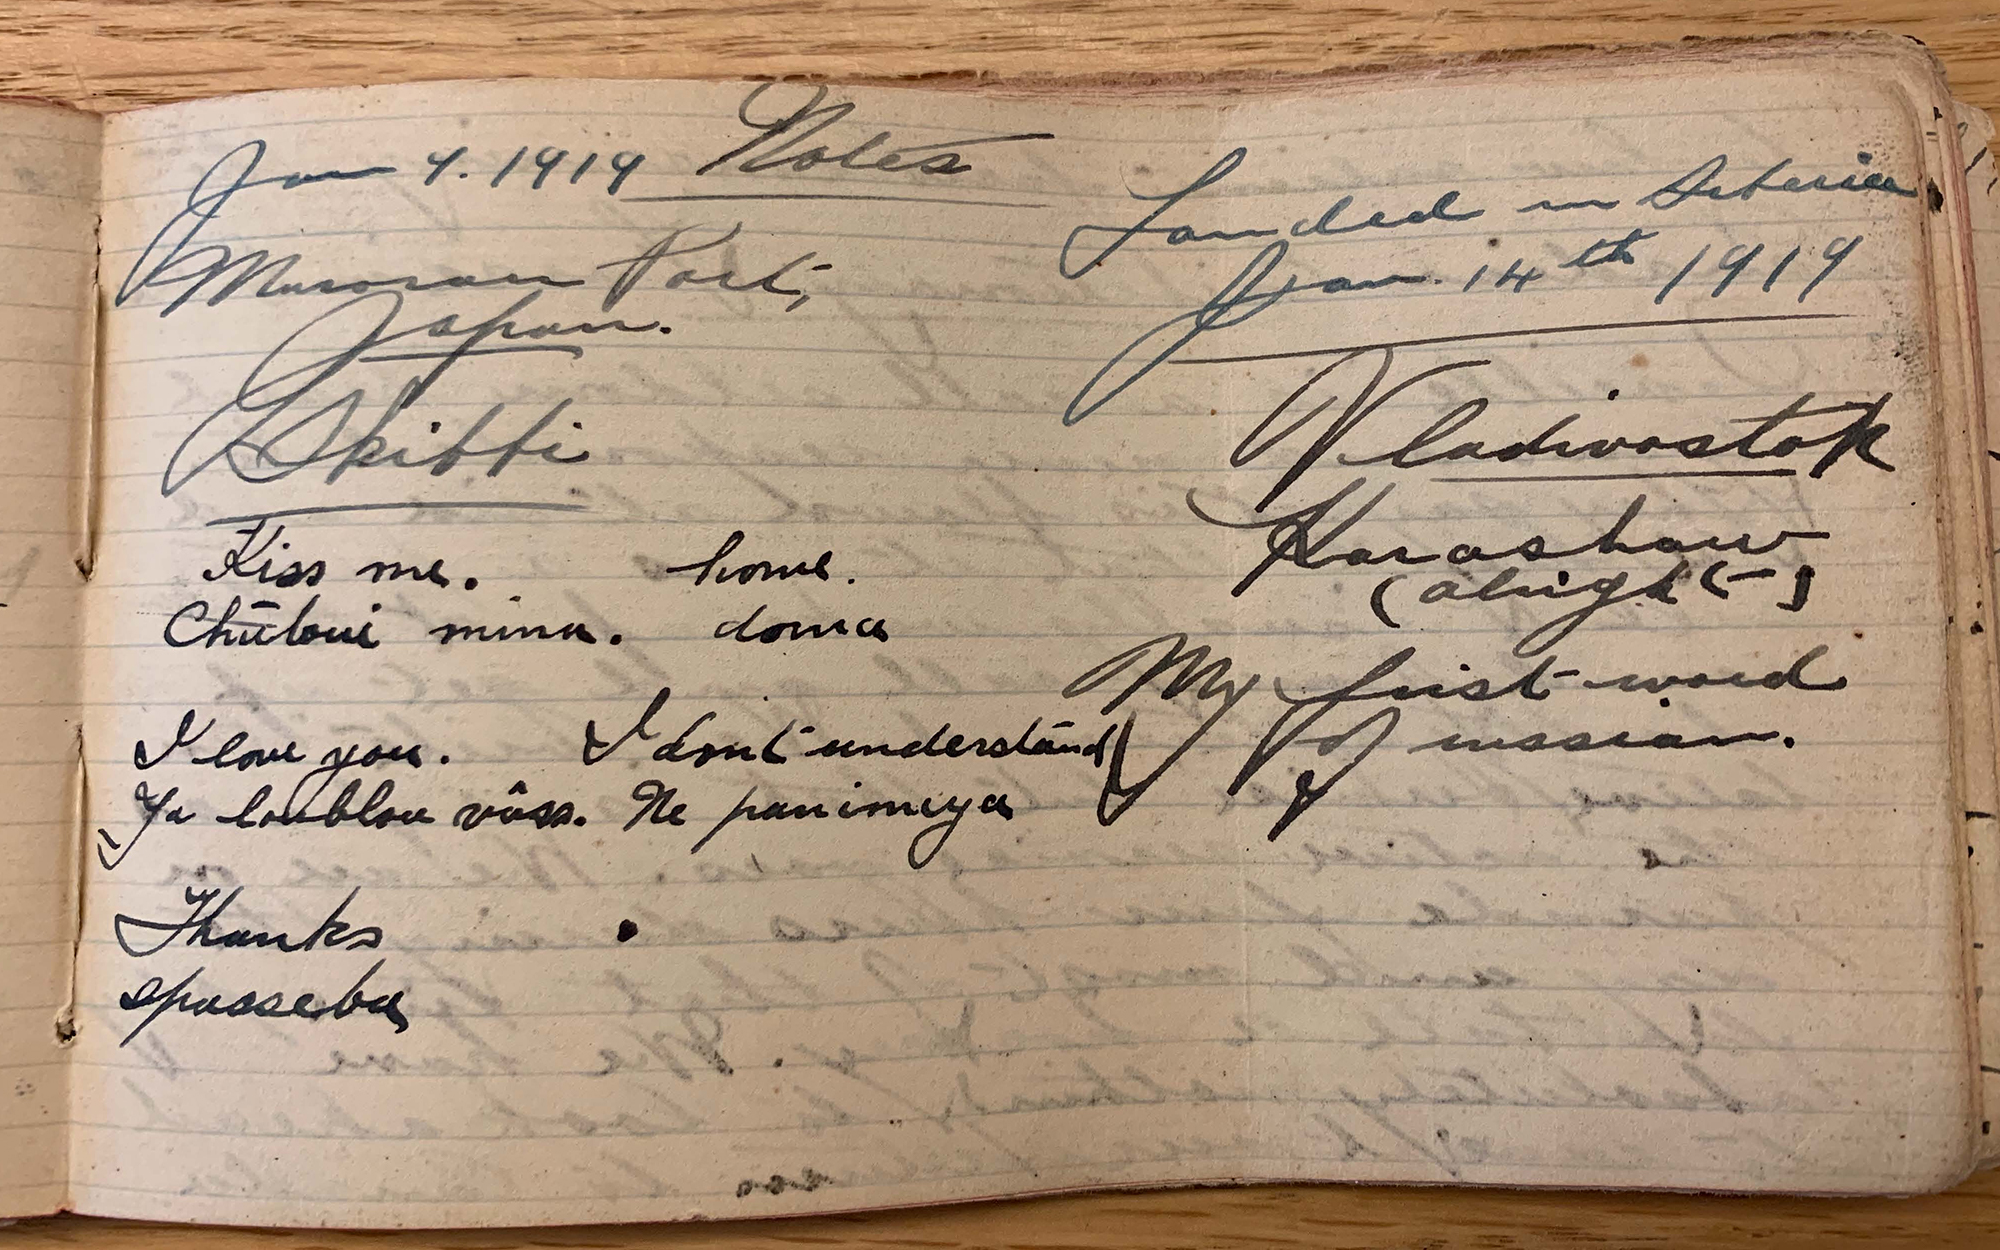 Notes
Jan 9. 1919
Mururan Port,
Japan.
Skibbi
Kiss me. home.
Chūloui mina. doma
I love you. I dont understand
Ya loublou vâss. Ne panimeya
Thanks
spasseba
Landed in Siberia
Jan. 14th 1919
Vladivostok
Harashaw
(alright)
My first word
of russian.